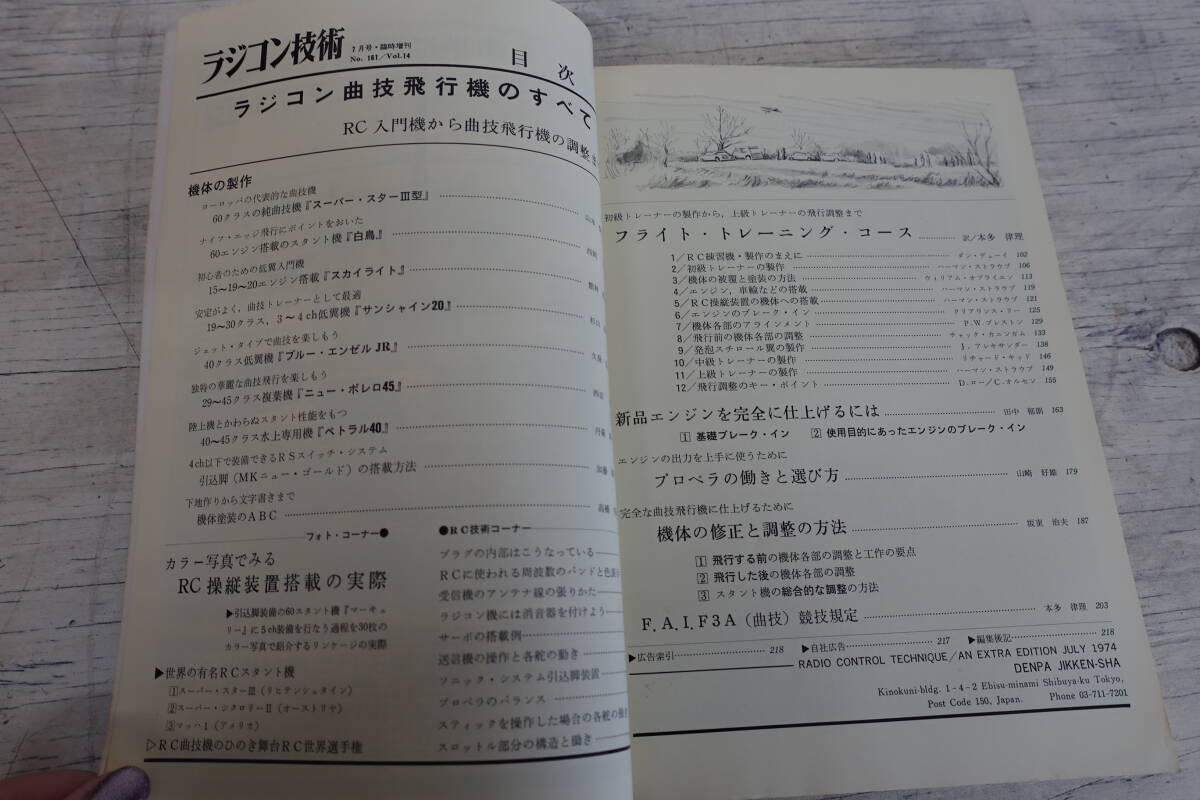 ラジコン技術
7月号・臨時増刊
No. 161/Vol.14
目次
ラジコン曲技飛行機のすべて
RC入門機から曲技飛行機の調整ま
機体の製作
ヨーロッパの代表的な曲技機
60クラスの純曲技機『スーパー・スターIII型』
ナイフ・エッジ飛行にポイントをおいた
60エンジン搭載のスタント機『白鳥』
初心者のための低翼入門機
15〜19〜20エンジン搭載『スカイライト』
安定がよく,曲技トレーナーとして最適
19〜30クラス,3〜4ch低翼機『サンシャイン20』
ジェット・タイプで曲技を楽しもう
40クラス低翼機『ブルー・エンゼルJR』
独特の華麗な曲技飛行を楽しもう
29〜45クラス複葉機『ニュー・ボレロ45』
陸上機とかわらぬスタント性能をもつ
40〜45クラス水上専用機『ペトラル40』
4ch以下で装備できるRSスイッチ・システム
引込脚(MKニュー・ゴールド)の搭載方法
下地作りから文字書きまで
機体塗装のABC
フォト・コーナー●
カラー写真でみる
RC操縦装置搭載の実際
▶引込脚装備の60スタント機『マーキュ
リー』に5ch装備を行なう過程を30枚の
カラー写真で紹介するリンケージの実際
▶世界の有名RCスタント機
1スーパー・スターIII(リヒテンシュタイン)
2スーパー・シクロリーII(オーストリヤ)
3マッハI(アメリカ)
▷RC曲技機のひのき舞台RC世界選手権
●RC技術コーナー
プラグの内部はこうなっている
RCに使われる周波数のバンドと色表
受信機のアンテナ線の張りかた
ラジコン機には消音器を付けよう
サーボの搭載例
送信機の操作と各舵の動き
ソニック・システム引込脚装置
プロペラのバランス
スティックを操作した場合の各舵の
スロットル部分の構造と働き
初級トレーナーの製作から,上級トレーナーの飛行調整まで
フライト・トレーニング・コース 訳/本多 律理
1/RC練習機・製作のまえに ダン・デューイ 102
2/初級トレーナーの製作 ハーマン・ストラウブ 106
3/機体の被覆と塗装の方法 ウィリアム・オブライエン 113
4/エンジン,車輪などの搭載 ハーマン・ストラウブ 119
5/RC操縦装置の機体への搭載 ハーマン・ストラウブ 121
6/エンジンのブレーク・イン クリアランス・リー 125
7/機体各部のアラインメント P.W.プレストン 129
8/飛行前の機体各部の調整 チャック・カニンガム 133
9/発泡スチロール翼の製作 J.アレキサンダー 138
10/中級トレーナーの製作 リチャード・キッド 146
11/上級トレーナーの製作 ハーマン・ストラウブ 149
12/飛行調整のキー・ポイント D.ロー/C.オルセン 155
新品エンジンを完全に仕上げるには 田中 163
1 基礎ブレーク・イン 2 使用目的にあったエンジンのブレーク・イン
エンジンの出力を上手に使うために
プロペラの働きと選び方 山崎 好雄 179
完全な曲技飛行機に仕上げるために
機体の修正と調整の方法 坂東 治夫 187
1 飛行する前の機体各部の調整と工作の要点
2 飛行した後の機体各部の調整
3 スタント機の総合的な調整の方法
F.A.I.F3A(曲技)競技規定 本多 律理 203
▶広告索引 218 ▶自社広告 217 ▶編集後記 218
RADIO CONTROL TECHNIQUE/AN EXTRA EDITION JULY 1974
DENPA JIKKEN-SHA
Kinokuni-bldg. 1-4-2 Ebisu-minami Shibuya-ku Tokyo,
Post Code 150, Japan. Phone 03-711-7201